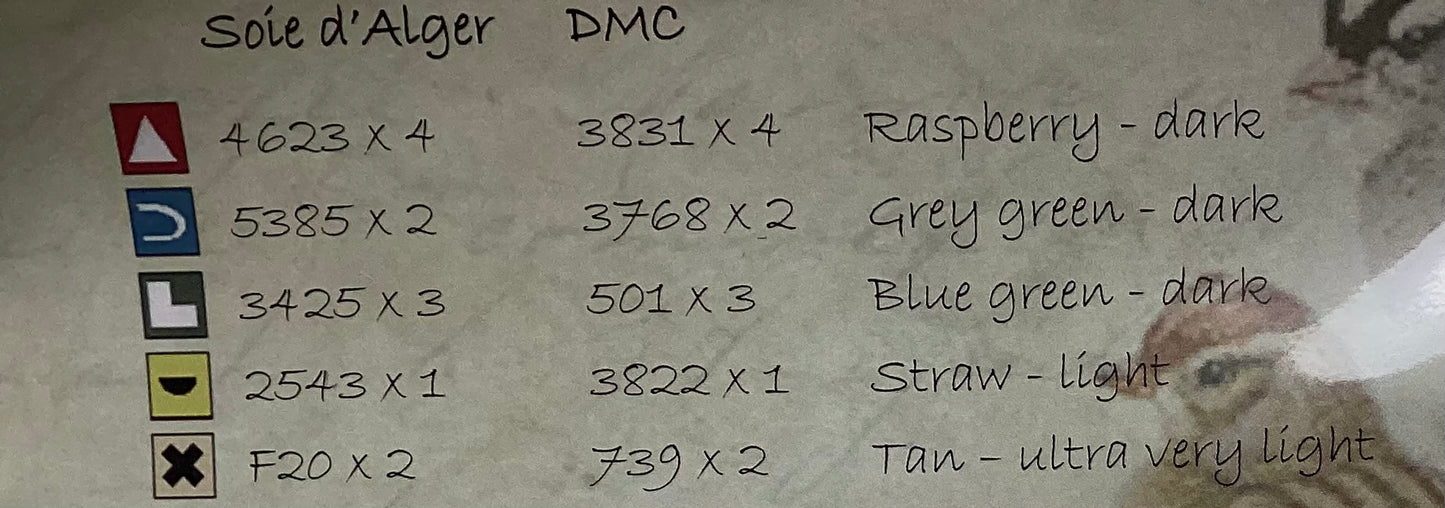 Soie d'Alger DMC
4623 x 4 3831 x 4 Raspberry - dark
5385 x 2 3768 x 2 Grey green - dark
3425 x 3 501 x 3 Blue green - dark
2543 x 1 3822 x 1 Straw - light
F20 x 2 739 x 2 Tan - ultra very light